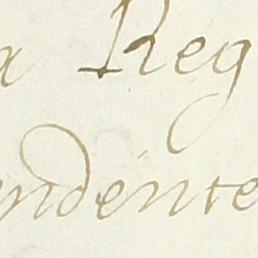 a Reg
endente